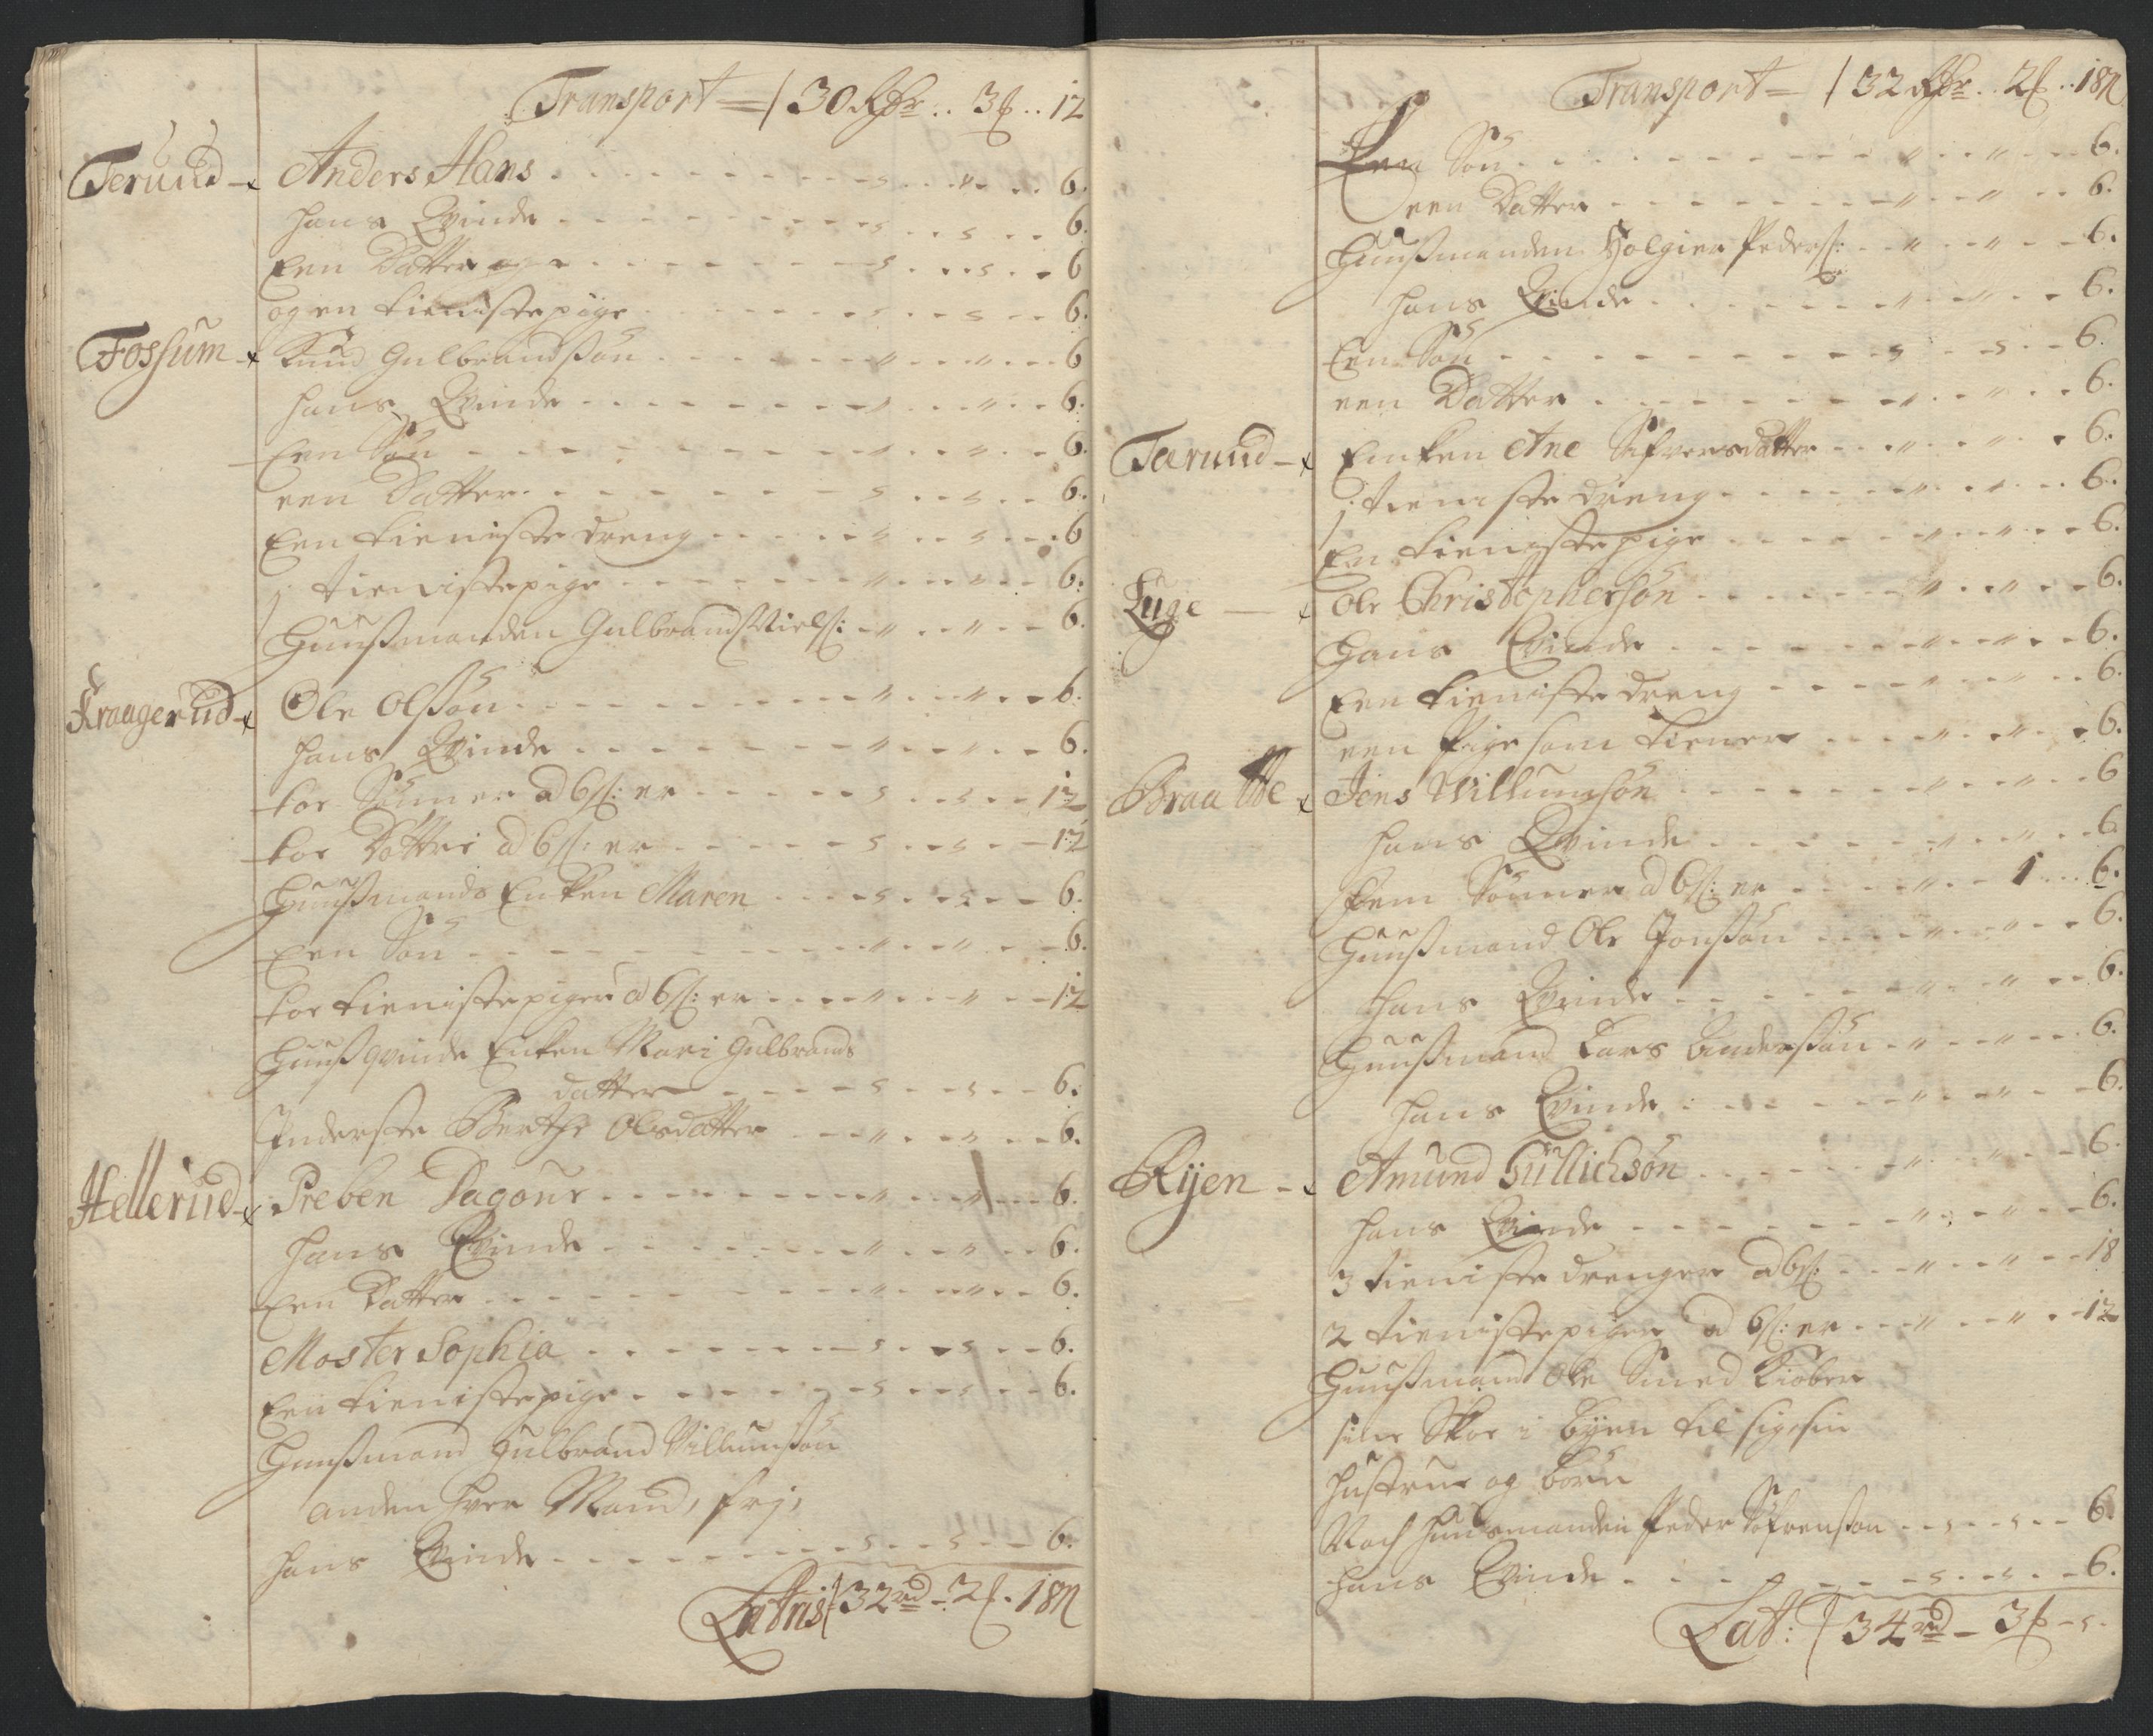 Transport = / 30 Rdr .. 3 ß .. 12
Terüud - Anders Hans - - - 6.
hans Qvinde - - - 6.
Een Datter - - - 6
og en tienistepige - - - 6.
Fossum - Knud Gulbrandssøn - - - 6
hans Qvinde - - - 6.
Een Søn - - - 6.
een Datter - - - 6.
Een tieniste dreng - - - 6
1 tienistepige - - - 6.
Huußmanden Gulbrand Nielß: - - - 6.
Kraagerud - Ole Olssøn - - - 6.
hans Qvinde - - - 6.
toe Sønner a 6 ß: er - - - 12
toe Døttre a 6 ß: er - - - 12
Huußmands Enken Maren - - - 6.
Een Søn - - - 6.
toe tienistepiger a 6 ß: er - - - 12
Huußqvinde Enken Mari Gulbrands
datter - - - 6.
Inderste Berthe Olsdatter - - - 6.
Hellerud - Preben Pagour - - - 6.
hans Qvinde - - - 6.
Een Datter - - - 6.
Moster Sophia - - - 6.
Een tienistepige - - - 6.
Huußmand Gulbrand Villumssøn
anden hver Mand, frj,
hans Qvinde - - - 6.
Latris / 32 rd - 2 ß . 18 ß
Transport = / 32 Rdr .. 2 ß .. 18 ß
Een Søn - - - 6.
een Datter - - - 6.
Huußmanden Holgier Pederß: - - - 6.
hans Qvinde - - - 6.
Een Søn - - - 6.
een Datter - - - 6.
Tærüud - Enken Ane Sifversdatter - - - 6.
1 tieniste dreng - - - 6.
En tienistepige - - - 6.
Luge - Ole Christophersøn - - - 6.
Hans Qvinde - - - 6.
Een tieniste dreng - - - 6.
een Pige som tiener - - - 6.
Braatte - Jens Willumsøn - - - 6
hans Qvinde - - - 6
fem Sønner a 6 ß: er - - - 1 - - 6.
Huußmand Ole Jonssøn - - - 6.
hans Qvinde - - - 6.
Huußmand Lars Anderssøn - - - 6.
hans Qvinde - - - 6.
Rijen - Amund Gullichsøn - - - 6.
hans Qvinde - - - 6.
3 tieniste drenger a 6 ß: - - - 18
2 tienistepiger a 6 ß: er - - - 12
Huußmand Ole Smed Kiøber
sine Skoe i Byen til sig sin
hustrue og børn
Noch Huusmanden Peder Søfrenssøn - - - 6.
hans Qvinde - - - 6.
Lat: / 34 rd - 3 ß - -